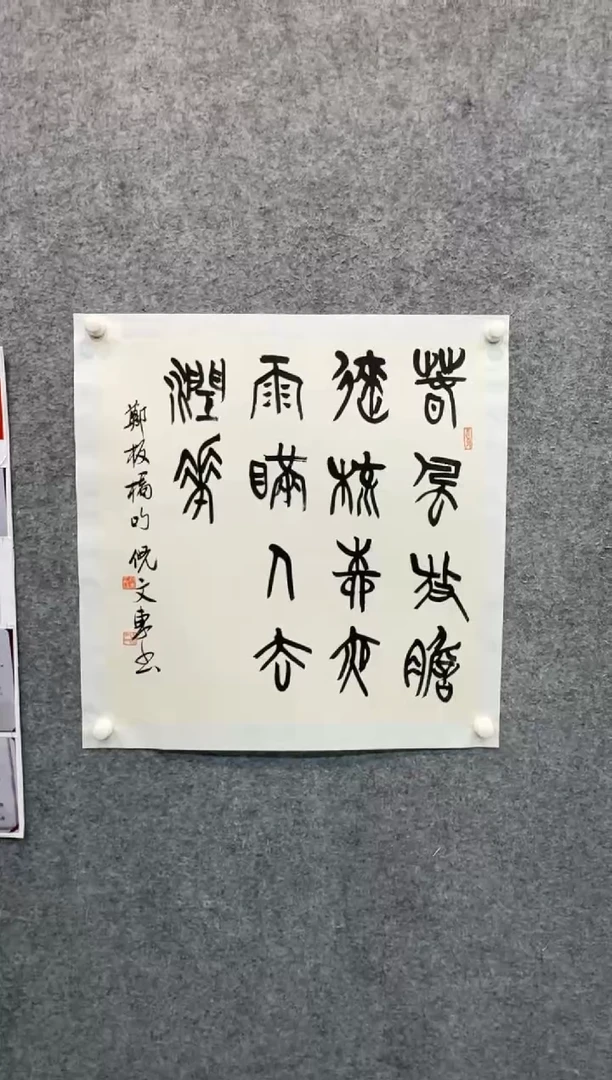 春風放膽
來梳柳夜
雨瞞人去
潤花
鄭板橋句 倪文東書